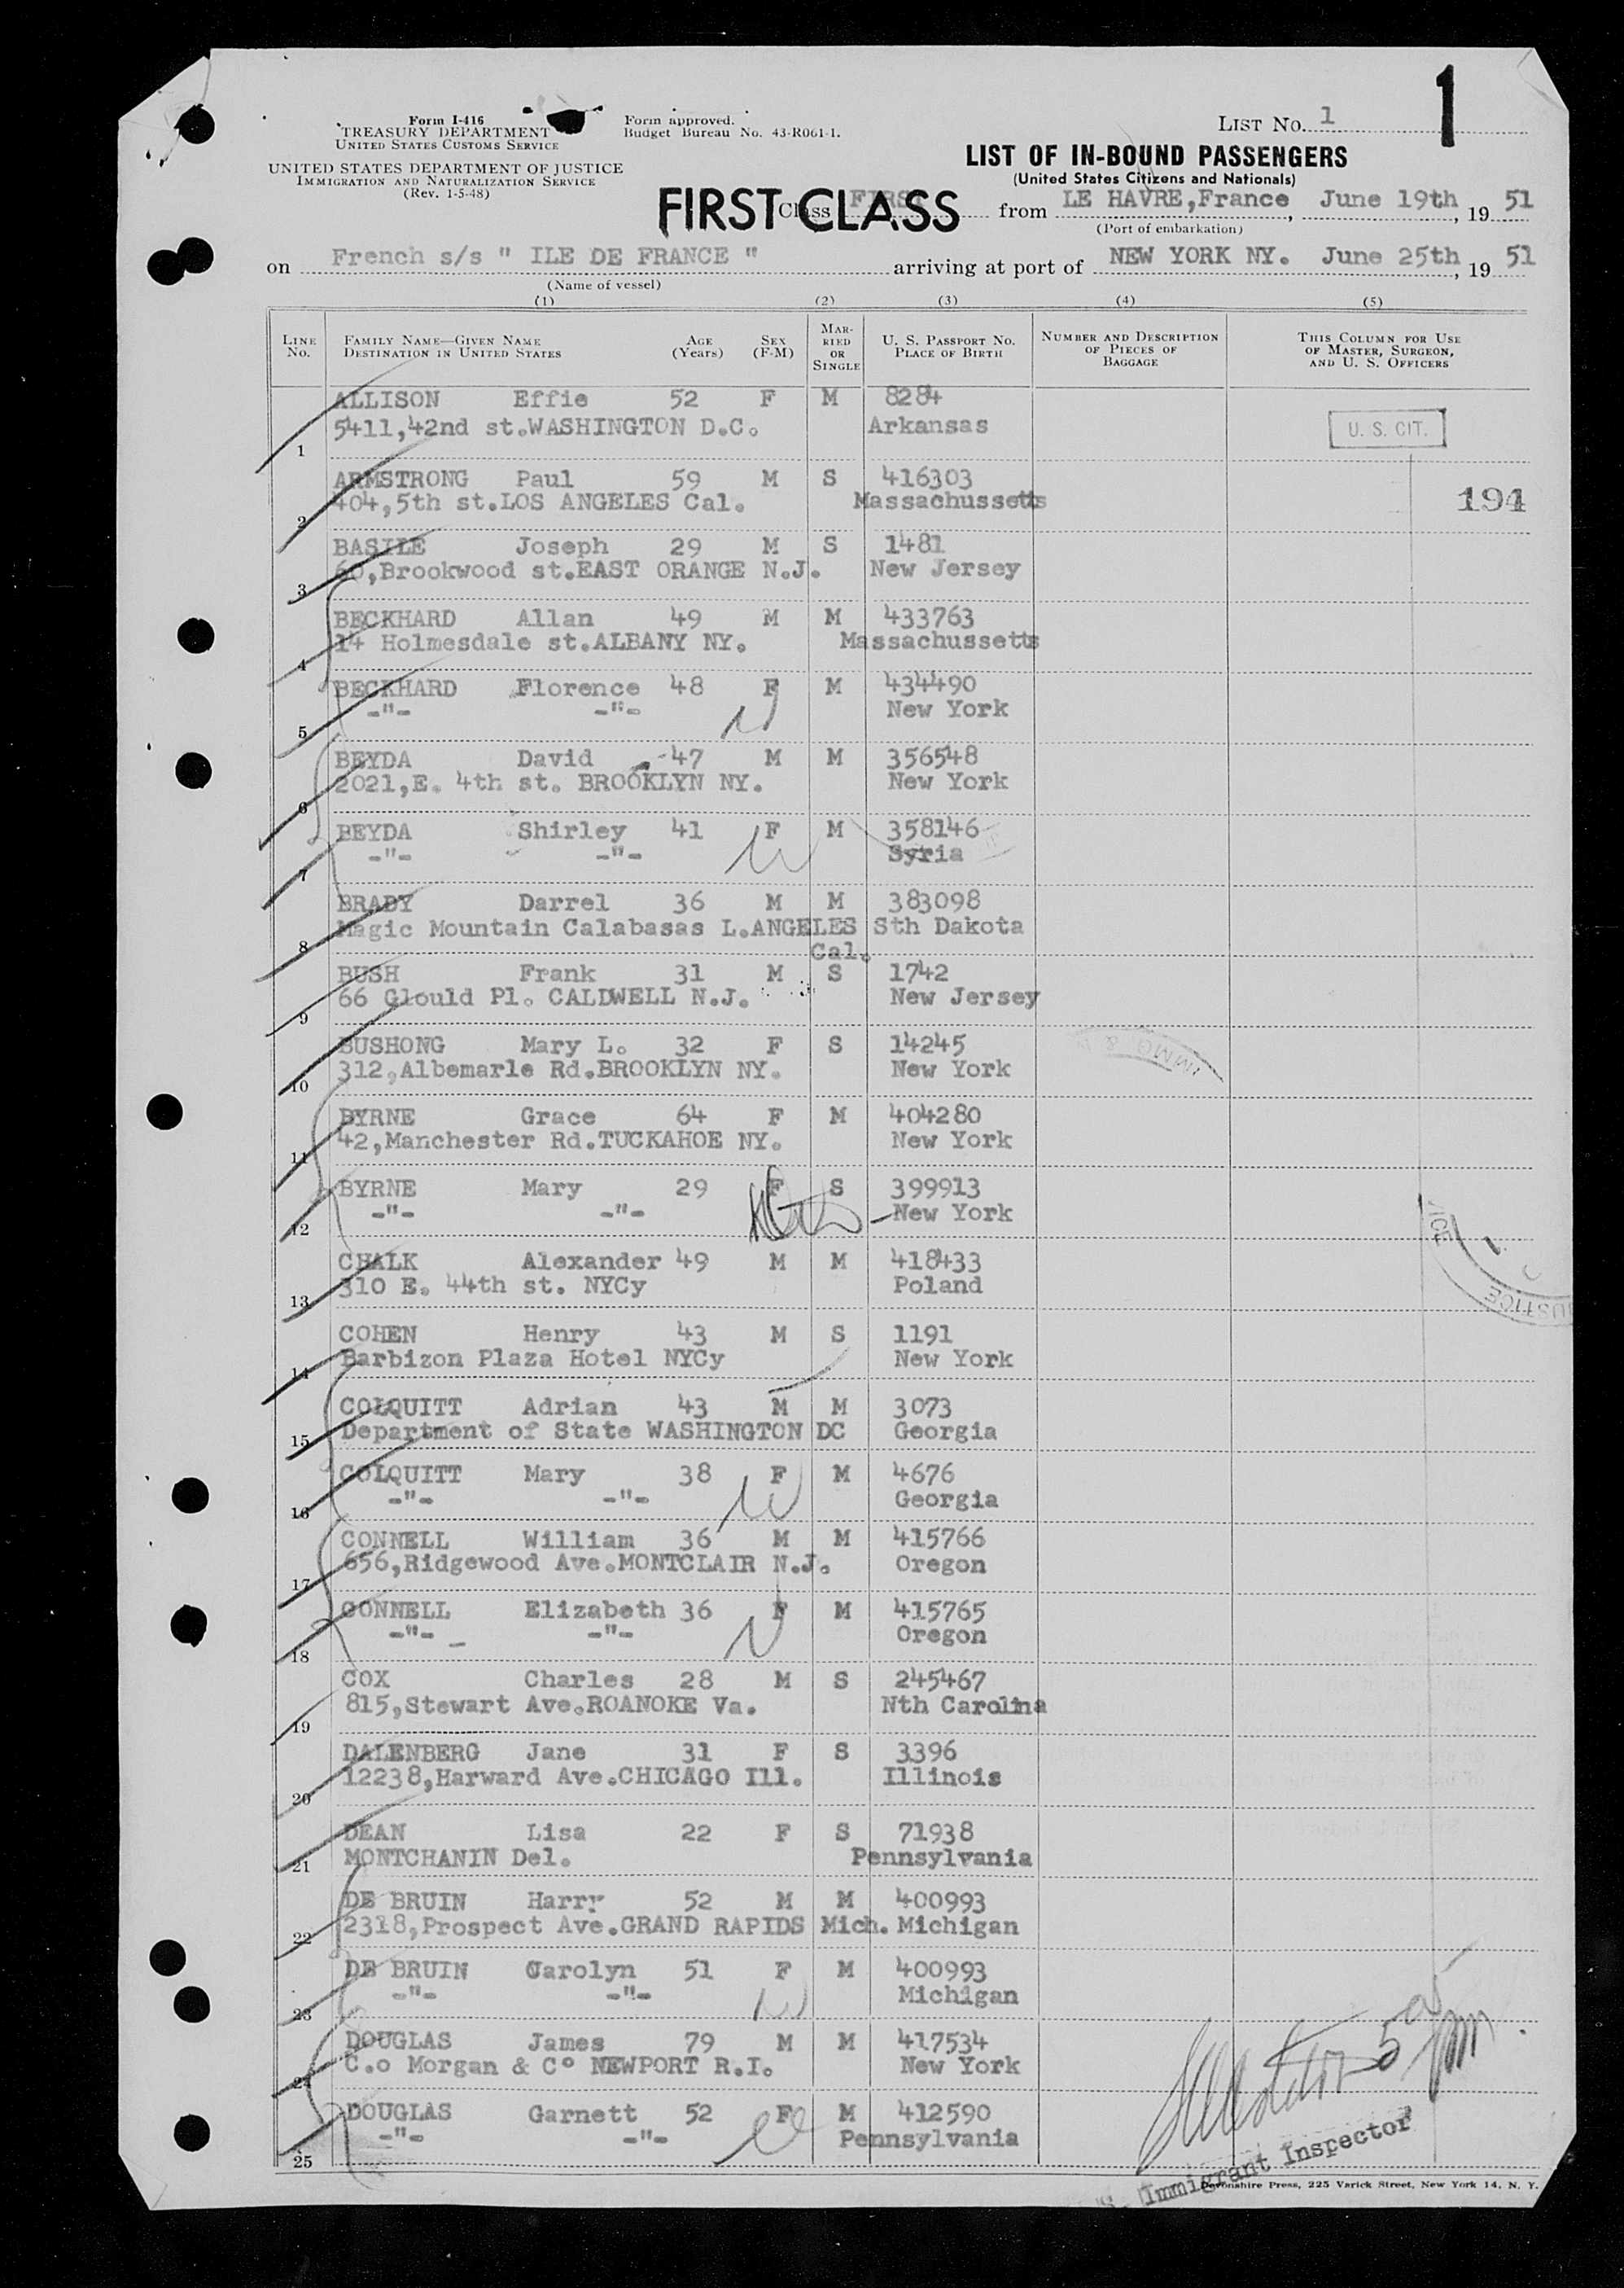 1
Form I-416
TREASURY DEPARTMENT
UNITED STATES CUSTOMS SERVICE
UNITED STATES DEPARTMENT OF JUSTICE
IMMIGRATION AND NATURALIZATION SERVICE
(Rev. 1-5-48)
Form approved.
Budget Bureau No. 43-R061-1.
LIST NO. 1
LIST OF IN-BOUND PASSENGERS
(United States Citizens and Nationals)
FIRST CLASS
Class FIRST from LE HAVRE,France, June 19th, 19 51
(Port of embarkation)
on French s/s " ILE DE FRANCE " arriving at port of NEW YORK NY. June 25th, 19 51
(Name of vessel)
(1) (2) (3) (4) (5)
LINE No. FAMILY NAME—GIVEN NAME DESTINATION IN UNITED STATES AGE (Years) SEX (F-M) MARRIED OR SINGLE U. S. PASSPORT NO. PLACE OF BIRTH NUMBER AND DESCRIPTION OF PIECES OF BAGGAGE THIS COLUMN FOR USE OF MASTER, SURGEON, AND U. S. OFFICERS
ALLISON Effie 52 F M 8284
1 5411,42nd st.WASHINGTON D.C. Arkansas U. S. CIT.
ARMSTRONG Paul 59 M S 416303
2 404,5th st.LOS ANGELES Cal. Massachussetts 194
BASILE Joseph 29 M S 1481
3 60,Brookwood st.EAST ORANGE N.J. New Jersey
BECKHARD Allan 49 M M 433763
4 14 Holmesdale st.ALBANY NY. Massachussetts
BECKHARD Florence 48 F M 434490
5 -"- -"- New York
BEYDA David 47 M M 356548
6 2021,E. 4th st. BROOKLYN NY. New York
BEYDA Shirley 41 F M 358146
7 -"- -"- Syria
BRADY Darrel 36 M M 383098
8 Magic Mountain Calabasas L.ANGELES Cal. Sth Dakota
BUSH Frank 31 M S 1742
9 66 Glould Pl. CALDWELL N.J. New Jersey
BUSHONG Mary L. 32 F S 14245
10 312,Albemarle Rd.BROOKLYN NY. New York
BYRNE Grace 64 F M 404280
11 42,Manchester Rd.TUCKAHOE NY. New York
BYRNE Mary 29 F S 399913
12 -"- -"- New York
CHALK Alexander 49 M M 418433
13 310 E. 44th st. NYCy Poland
COHEN Henry 43 M S 1191
14 Barbizon Plaza Hotel NYCy New York
COLQUITT Adrian 43 M M 3073
15 Department of State WASHINGTON DC Georgia
COLQUITT Mary 38 F M 4676
16 -"- -"- Georgia
CONNELL William 36 M M 415766
17 656,Ridgewood Ave.MONTCLAIR N.J. Oregon
CONNELL Elizabeth 36 F M 415765
18 -"- -"- Oregon
COX Charles 28 M S 245467
19 815,Stewart Ave.ROANOKE Va. Nth Carolina
DALENBERG Jane 31 F S 3396
20 12238,Harward Ave.CHICAGO Ill. Illinois
DEAN Lisa 22 F S 71938
21 MONTCHANIN Del. Pennsylvania
DE BRUIN Harry 52 M M 400993
22 2318,Prospect Ave.GRAND RAPIDS Mich. Michigan
DE BRUIN Carolyn 51 F M 400993
23 -"- -"- Michigan
DOUGLAS James 79 M M 417534
24 C.o Morgan & C° NEWPORT R.I. New York
DOUGLAS Garnett 52 F M 412590
25 -"- -"- Pennsylvania
Immigrant Inspector
Devonshire Press, 225 Varick Street, New York 14, N. Y.